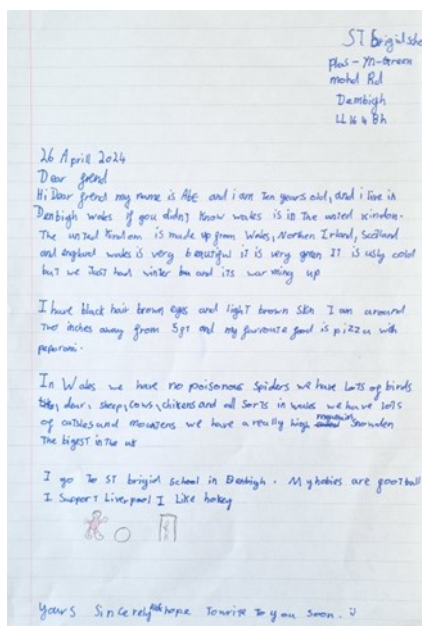 ST brigid scho
plas-yn-Green
mohd Rd
Dembigh
LL16 4 Bh
26 Aprill 2024
Dear frend
Hi Dear frend my name is Abe and i am Ten years old, and i live in
Denbigh wales if you didn't know wales is in The unted Kindon.
The unted Kindom is made up from Wales, Northen Irland, Scotland
and england wales is very beautiful it is very green IT is usly cold
but we Just had winter and its warming up
I have black hair brown eyes and light brown skin I am around
Two inches away from 5ft and my favroute food is pizza with
peperoni.
In Wales we have no poisonous spiders we have LoTs of birds
dear, sheep, cows, chikens and all sorts in wales we have loTs
of catsles and mountens we have a really high mountin Snowden
The bigest in the uk
I go To ST brigid school in Denbigh. My hobies are football
I SupporT Liverpool I Like hokey
Yours Sincerely hope To write To you soon.